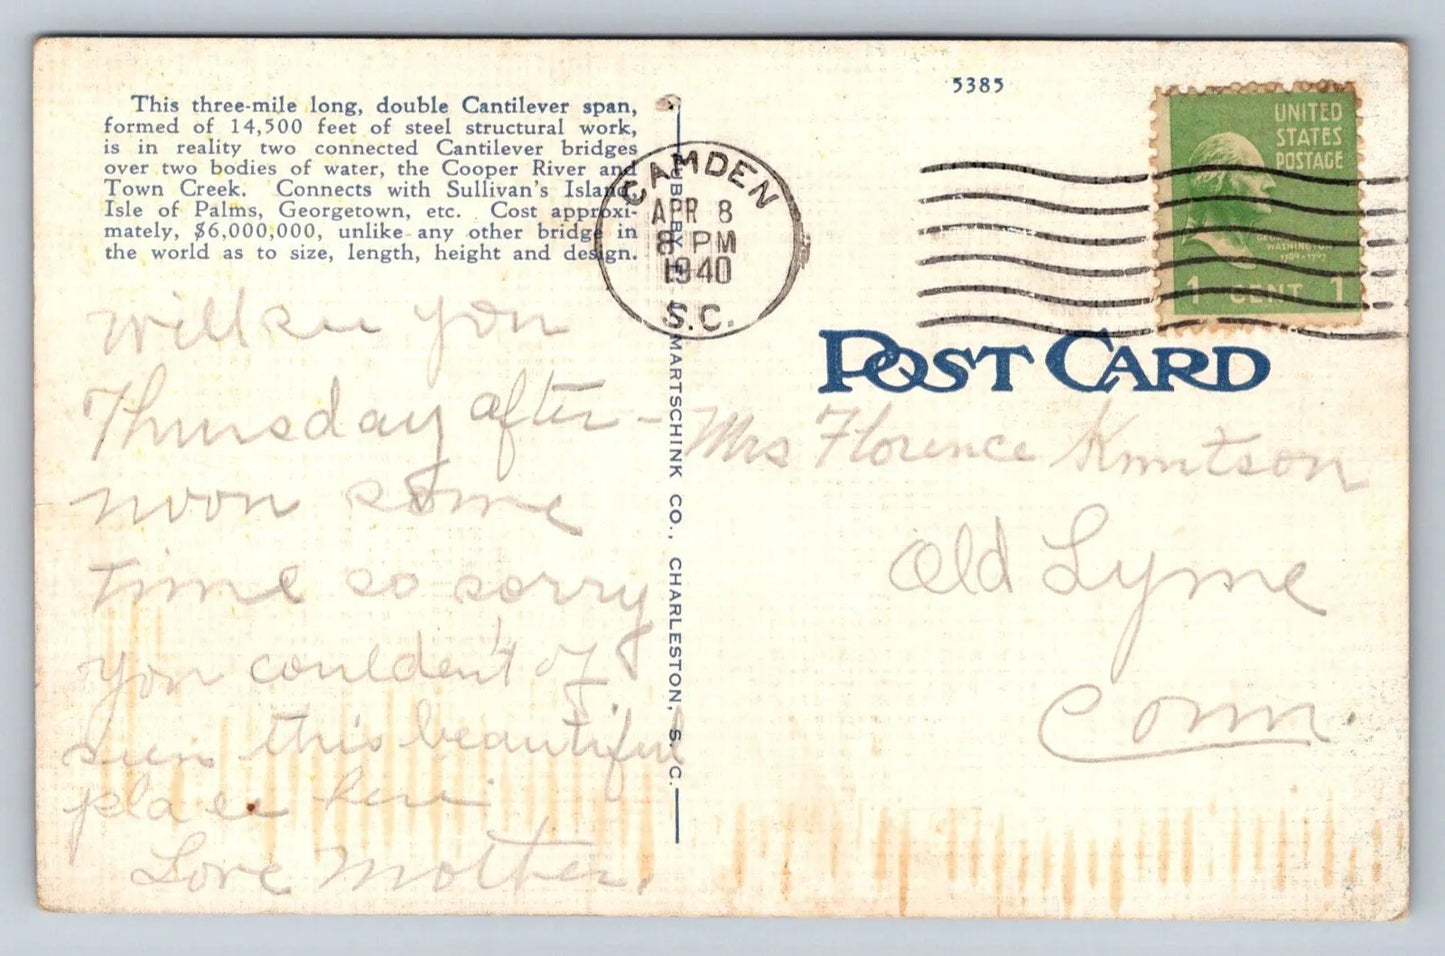 This three-mile long, double Cantilever span,
formed of 14,500 feet of steel structural work,
is in reality two connected Cantilever bridges
over two bodies of water, the Cooper River and
Town Creek. Connects with Sullivan's Island,
Isle of Palms, Georgetown, etc. Cost approxi-
mately, $6,000,000, unlike any other bridge in
the world as to size, length, height and design.
will see you
Thursday after-
noon some
time so sorry
you couldent of
seen this beautiful
place here
Love Mother.
PUB. BY MARTSCHINK CO., CHARLESTON, S. C.
CAMDEN
APR 8
8 PM
1940
S.C.
5385
UNITED
STATES
POSTAGE
GEORGE
WASHINGTON
1789-1797
1 CENT 1
POST CARD
Mrs Florence Knutson
Old Lyme
Conn.